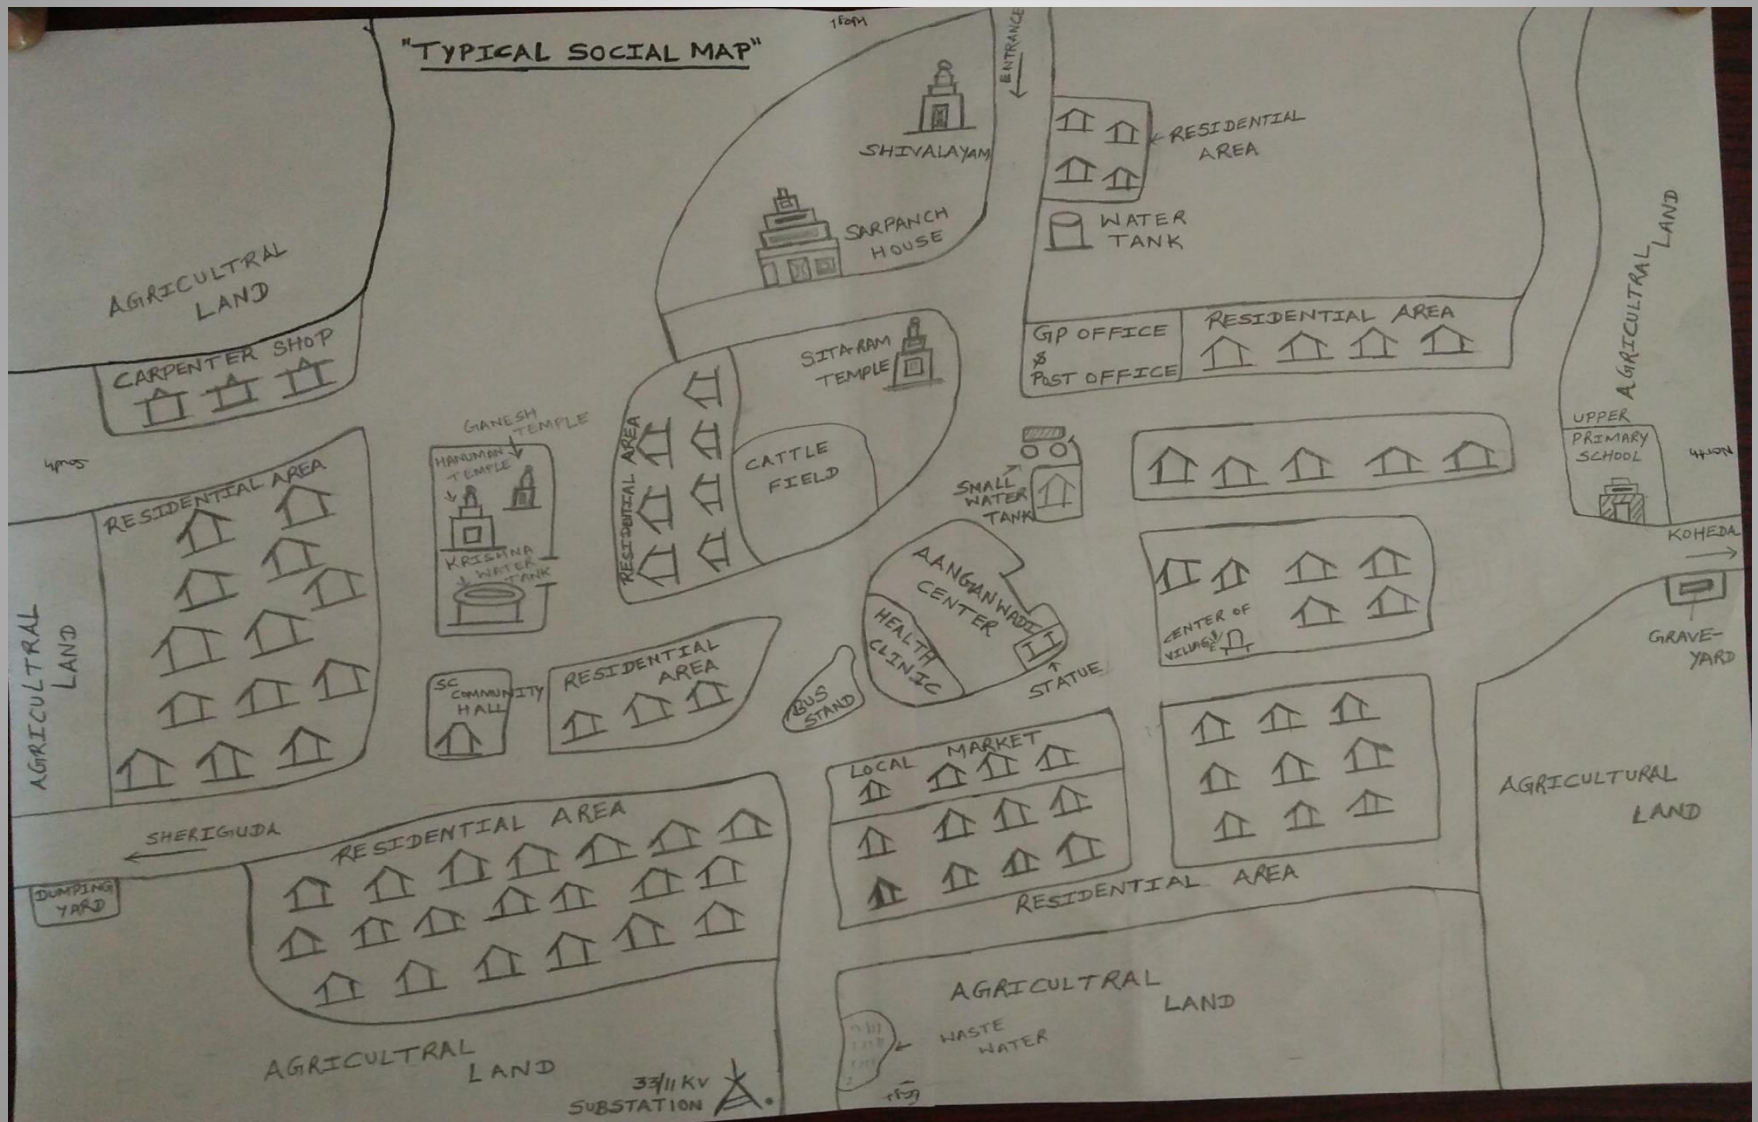 "TYPICAL SOCIAL MAP"
ENTRANCE
SHIVALAYAM
RESIDENTIAL
AREA
WATER
TANK
SARPANCH
HOUSE
AGRICULTRAL
LAND
AGRICULTRAL
LAND
CARPENTER SHOP
SITARAM
TEMPLE
GP OFFICE
&
POST OFFICE
RESIDENTIAL AREA
GANESH
TEMPLE
HANUMAN
TEMPLE
KRISHNA
WATER
TANK
RESIDENTIAL AREA
CATTLE
FIELD
SMALL
WATER
TANK
UPPER
PRIMARY
SCHOOL
South
North
KOHEDA
GRAVE-
YARD
RESIDENTIAL AREA
AGRICULTRAL
LAND
AANGANWADI
CENTER
HEALTH
CLINIC
STATUE
CENTER OF
VILLAGE
SC
COMMUNITY
HALL
RESIDENTIAL
AREA
BUS
STAND
LOCAL MARKET
AGRICULTURAL
LAND
SHERIGUDA
DUMPING
YARD
RESIDENTIAL AREA
RESIDENTIAL AREA
AGRICULTRAL
LAND
WASTE
WATER
AGRICULTRAL
LAND
33/11 KV
SUBSTATION